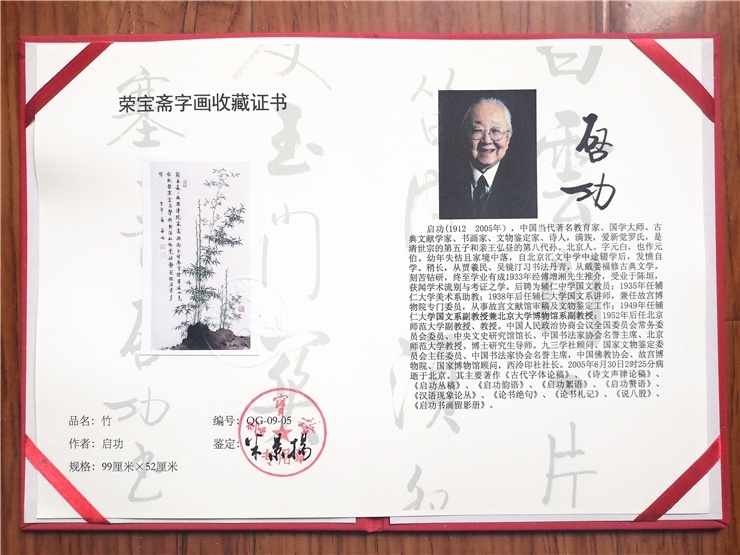 荣宝斋字画收藏证书
品名：竹
编号：QG-09-05
作者：启功
鉴定：米景揚
规格：99厘米×52厘米
启功
启功(1912 2005年)，中国当代著名教育家、国学大师、古
典文献学家、书画家、文物鉴定家、诗人，满族，爱新觉罗氏，是
清世宗的第五子和亲王弘昼的第八代孙。北京人，字元白，也作元
伯。幼年失怙且家境中落，自北京汇文中学中途辍学后，发愤自
学。稍长，从贾羲民、吴镜汀习书法丹青，从戴姜福修古典文学。
刻苦钻研，终至学业有成1933年经傅增湘先生推介，受业于陈垣，
获闻学术流别与考证之学。后聘为辅仁中学国文教员；1935年任辅
仁大学美术系助教；1938年后任辅仁大学国文系讲师，兼任故宫博
物院专门委员，从事故宫文献馆审稿及文物鉴定工作；1949年任辅
仁大学国文系副教授兼北京大学博物馆系副教授；1952年后任北京
师范大学副教授、教授。中国人民政治协商会议全国委员会常务委
员会委员、中央文史研究馆馆长、中国书法家协会名誉主席，北京
师范大学教授、博士研究生导师。九三学社顾问、国家文物鉴定委
员会主任委员、中国书法家协会名誉主席，中国佛教协会、故宫博
物院、国家博物馆顾问，西泠印社社长。2005年6月30日2时25分病
逝于北京。其主要著作《古代字体论稿》、《诗文声律论稿》、
《启功丛稿》、《启功韵语》、《启功絮语》、《启功赘语》、
《汉语现象论丛》、《论书绝句》、《论书札记》、《说八股》、
《启功书画留影册》。